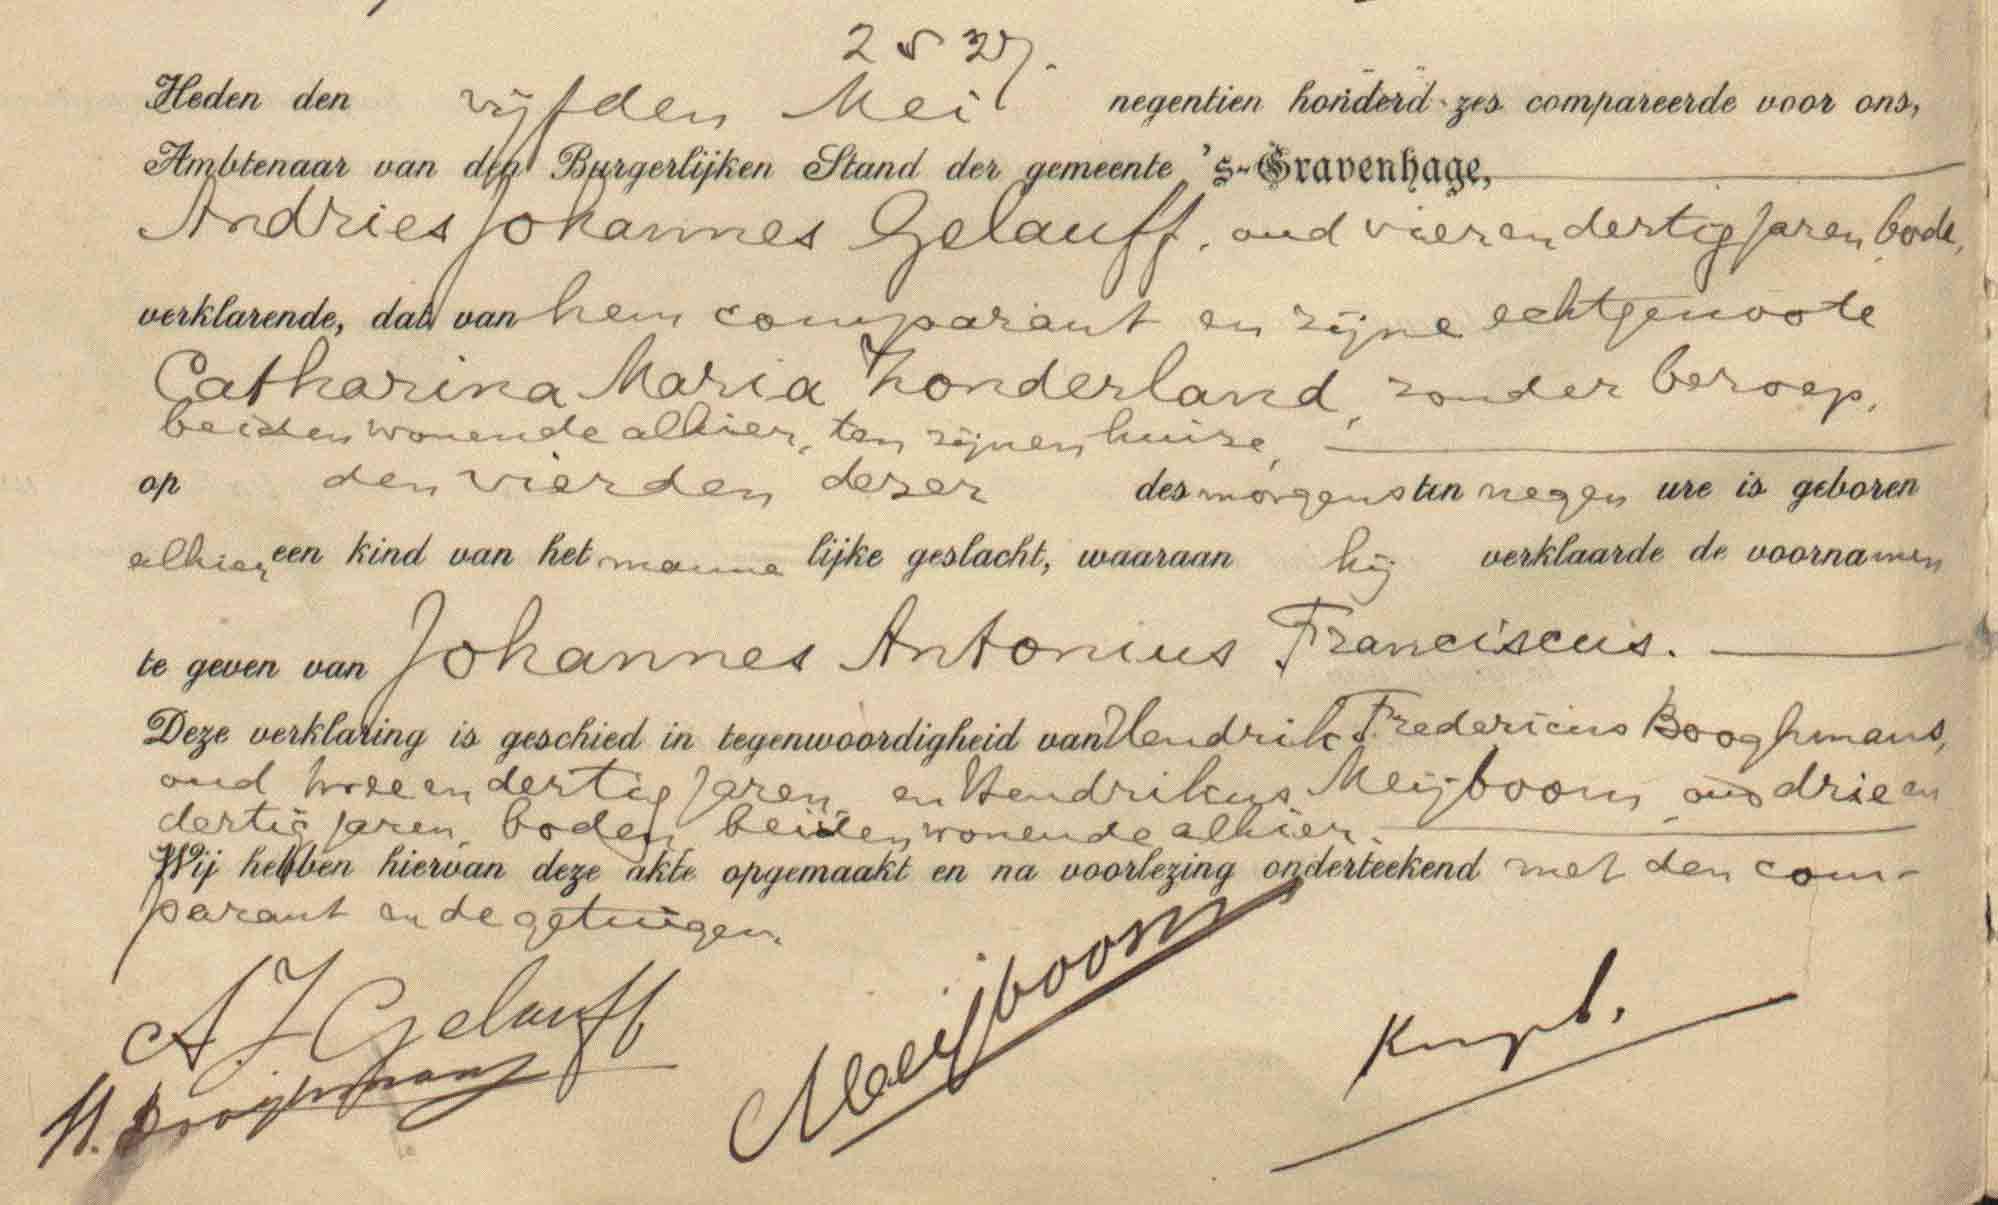 2527.
Heden den vijfden Mei negentien honderd zes compareerde voor ons,
Ambtenaar van den Burgerlijken Stand der gemeente 's-Gravenhage,
Andries Johannes Gelauff, oud vier en dertig jaren, bode,
verklarende, dat van hem comparant en zijne echtgenoote
Catharina Maria Zonderland, zonder beroep,
beiden wonende alhier, ten zijnen huize,
op den vierden dezer des morgens ten negen ure is geboren
alhier een kind van het manne lijke geslacht, waaraan hij verklaarde de voornamen
te geven van Johannes Antonius Franciscus.
Deze verklaring is geschied in tegenwoordigheid van Hendrik Fredericus Booghmans,
oud twee en dertig jaren, en Hendrikus Meijboom, oud drie en
dertig jaren, boden, beiden wonende alhier.
Wij hebben hiervan deze akte opgemaakt en na voorlezing onderteekend met den com-
parant en de getuigen.
A J Gelauff
Meijboom
H. Booghmans